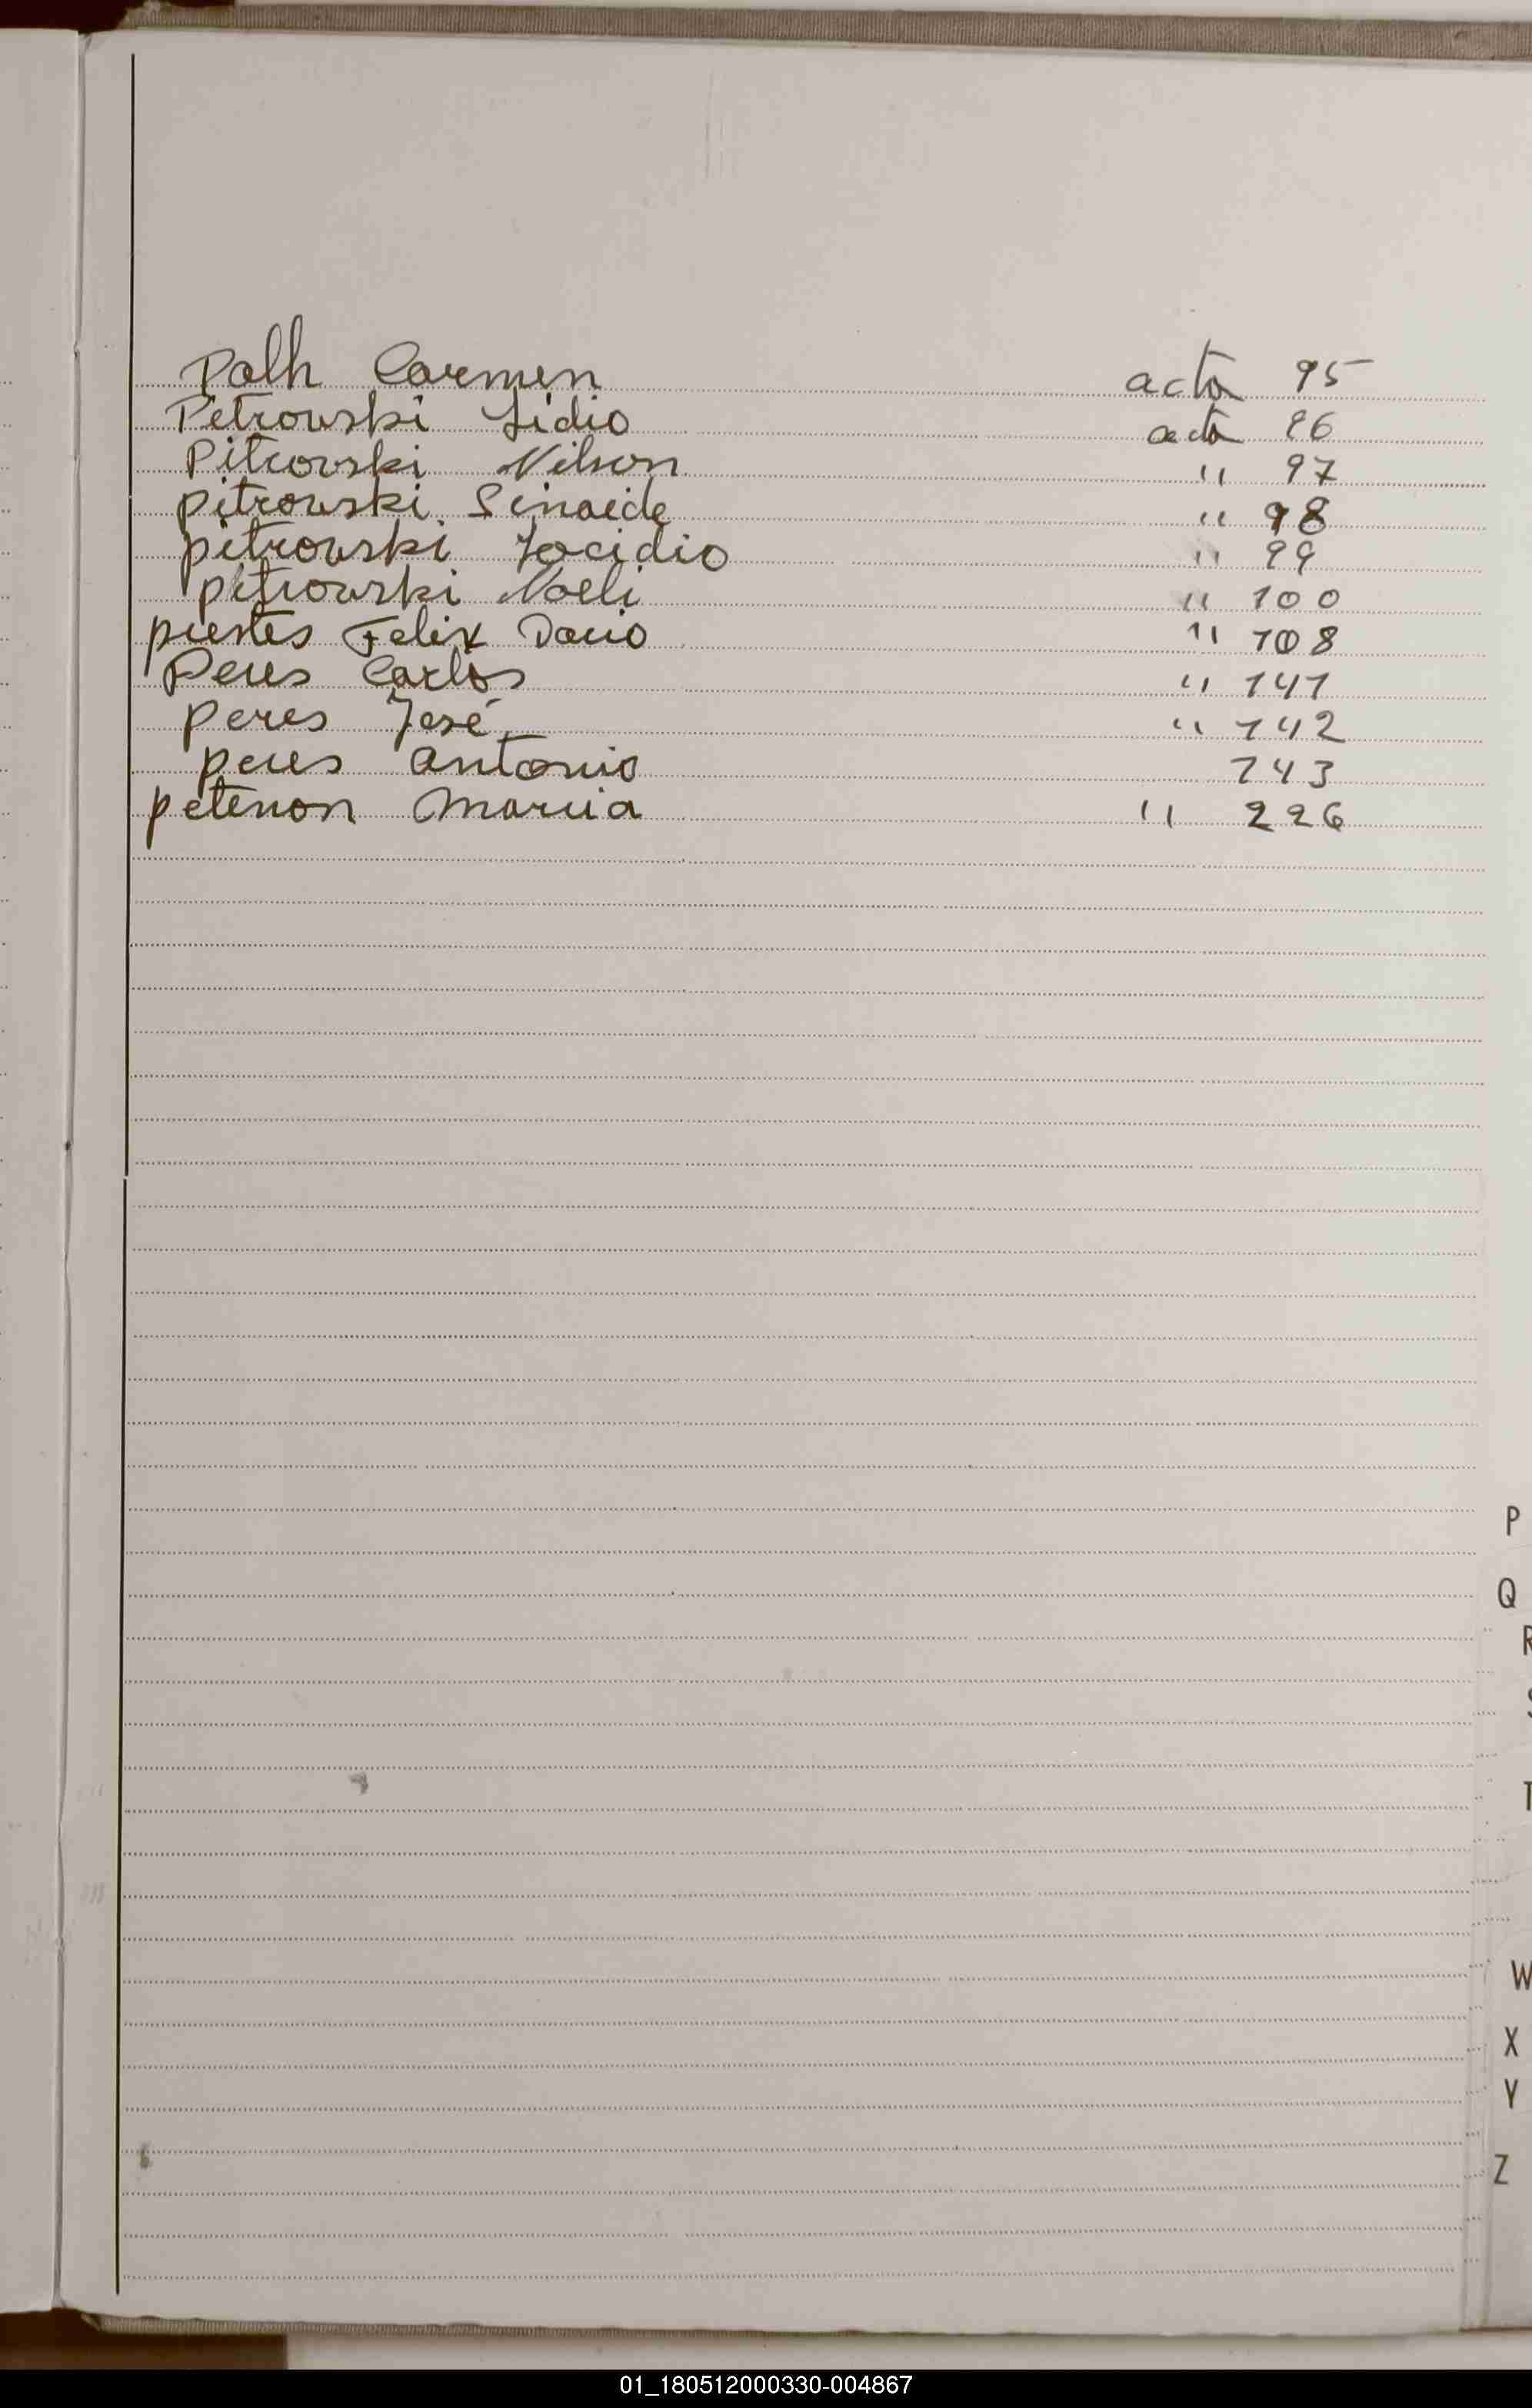 Palh Carmen acta 95
Petrowski Lidio acta 96
Pitrovski Nilson " 97
pitrowski Sinaide " 98
pitrowski Jocidio " 99
pitrowski Noeli " 100
prestes Felix Dario " 108
Peres Carlos " 141
peres José " 142
peres antonio 143
petenon maria " 226
P
Q
R
S
T
W
X
Y
Z
01_180512000330-004867